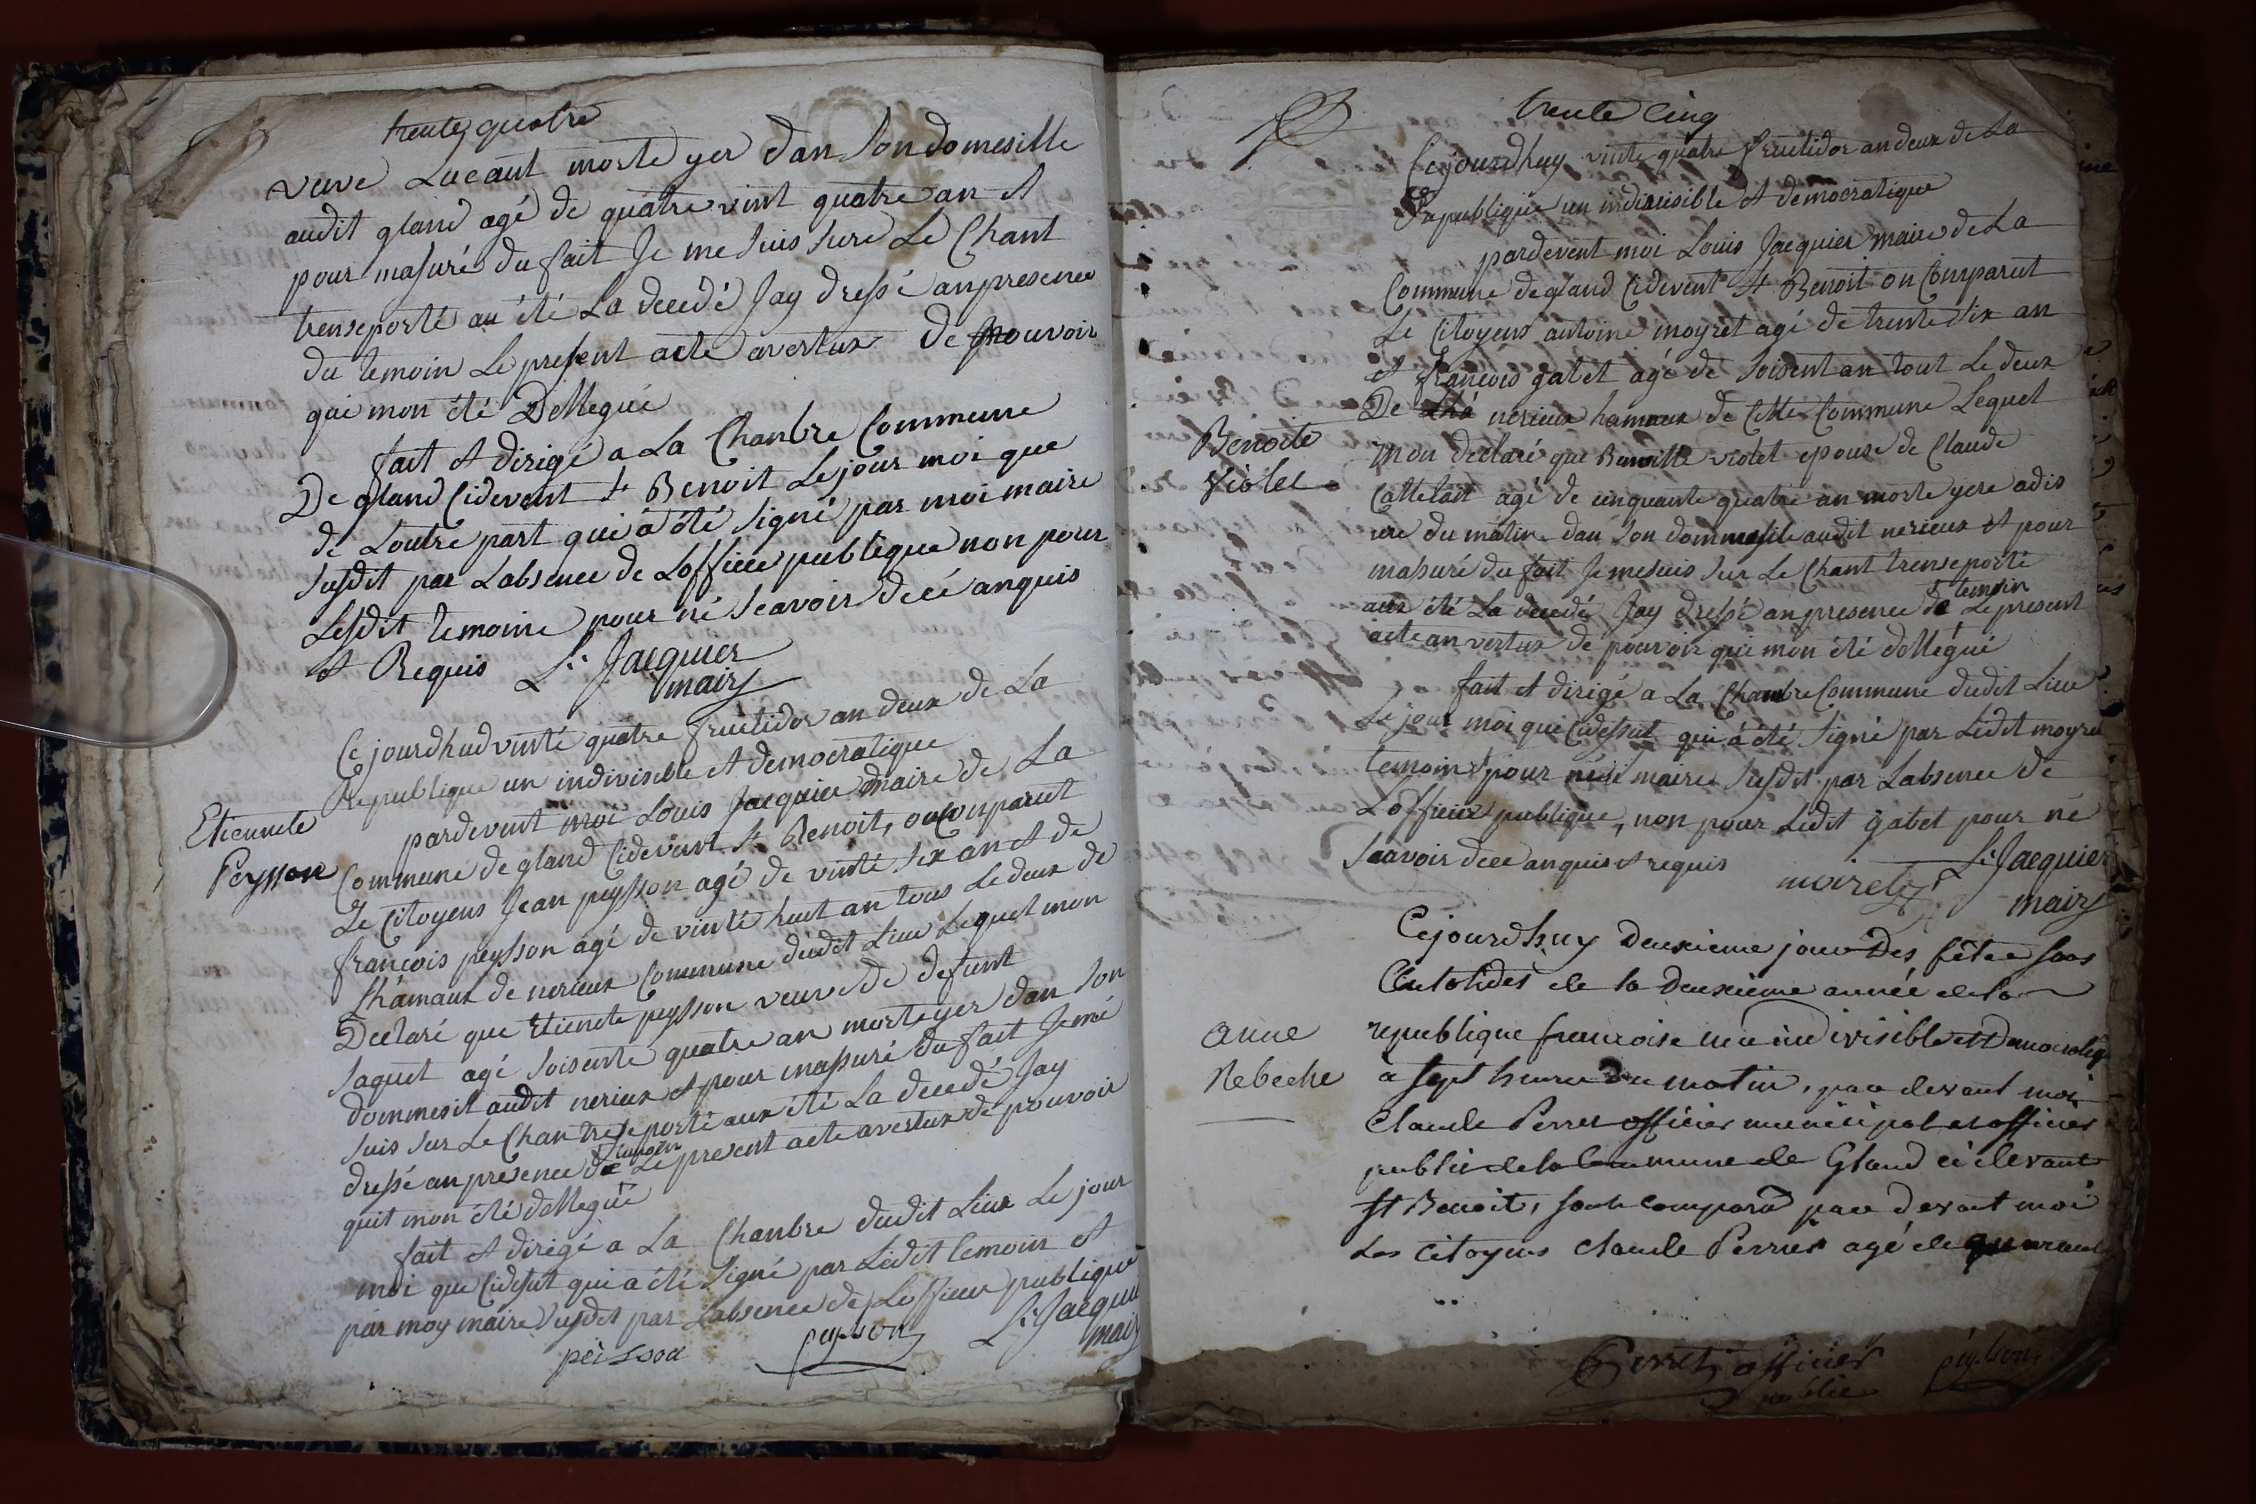 trente quatre
veuve Lueant morte yer dan Son domesille
audit gland agé de quatre vint quatre an et
pour masuré du fait Je me Suis Sure Le Chant
trenseporté au été La decedé Jay dressé anpresence
du temoin Le present acte avertux de pouvoir
qui mon été Dellegué
fait et dirigé a La Chanbre Commune
De gland Cidevant St Benoit Le jour moi que
de Loutre part qui a été Signé par moi maire
Susdit par Labsence de Lofficie publique non pour
Lesdit temoins pour né Scavoir decé anquis
et Requis Ls Jacquier
maire
Ce jourdhud vinté quatre fructidor an deux de La
Republique un indivisible et democratique
pardevent moi Louis Jacquier maire de La
Etiennete
Peysson
Commune de gland Cidevant St Benoit, on Conparut
Le Citoyens Jean peysson agé de vinté Six an et de
francois peysson agé de vinté huit an tous Le deux de
Lhamaux de nerieux Commune dudit Lieu Lequel mon
Declaré que Etienete peysson veuve de defunt
Jaquet agé Soisente quatre an morte yer dan Son
dommesil audit nerieux et pour masuré du fait Je mé
Suis Sur Le Chan trenseporté aux été La decedé Jay
temoin
dressé anpresence de Le present acte avertux de pouvoir
quit mon été dellegué
fait et dirigé a La Chanbre dudit Lieux Le jour
moi que Cidesut qui a été Signé par Ledit temoin et
par moy maire Susdit par Labsence de Lofficier publique
peisson peyson Ls Jacquier
maire
trente Cinq
Cejourdhuy vinte quatre fructidor an deux de La
Republique un indivisible et democratique
pardevent moi Louis Jacquier maire de La
Commune de gland Cidevent St Benoit on Comparut
Le Citoyens antoine moyret agé de trente dix an
et francois gatet agé de Soisent an tout Le deux
De nerieux hameaux de Cette Commune Lequel
Benoite
Violet
mon declaré que Benoitte violet epouse de Claude
Cattelait agé de cinquante quatre an morte yere a dis
ure du matin dan Son dommesile audit nerieux et pour
masuré du fait Je mesuis Sur Le Chant trenseporté
temoin
aux été La decedé Jay dressé anpresence de Le present
acte an vertux de pouvoir qui mon été dellégué
fait et dirigé a La Chanbre Commune dudit Lieu
Le jour moi que Cidessut qui a été Signé par Ledit moyret
temoin et pour maire Susdit par Labsence de
Lofficier publique, non pour Ledit gatet pour né
Scavoir decé anquis et requis
moiret Ls Jacquier
maire
Cejourdhuy Deuxieme jour Des fête Sans
Culotides de la Deuxieme année de la
anne
Rebeche
republique francoise une indivisible et Democratiq
a sept heure du matin, par devant moi
Claude Perret officier municipal et officier
public de la Commune de Gland ci devant
St Benoit, Sont comparu par devant moi
Les Citoyens Claude Perrier agé de quarant
Perret officier
public
peyson